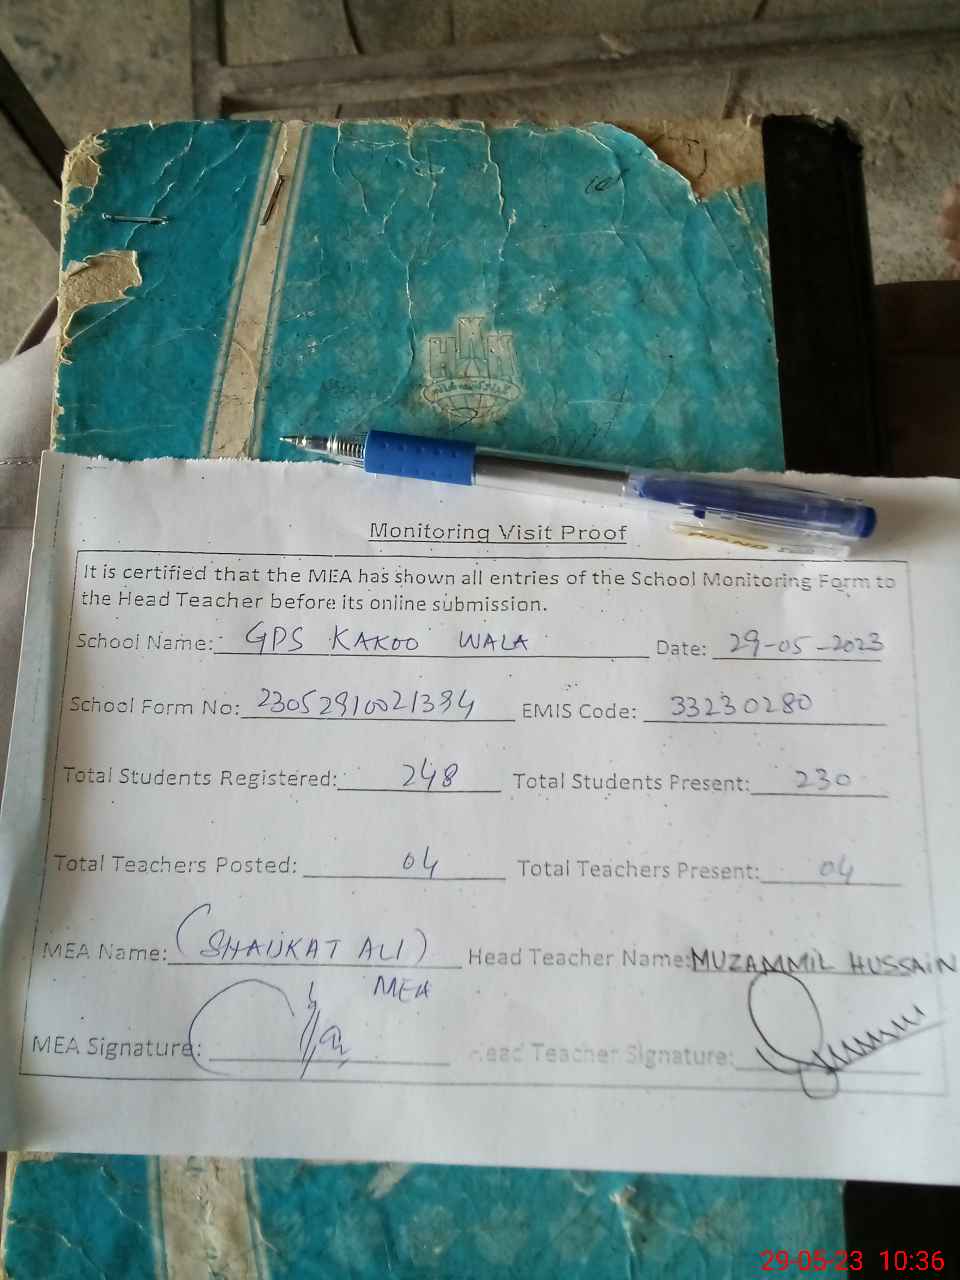 Monitoring Visit Proof
It is certified that the MEA has shown all entries of the School Monitoring Form to
the Head Teacher before its online submission.
School Name: GPS KAKOO WALA Date: 29-05-2023
School Form No: 23052910021394 EMIS Code: 33230280
Total Students Registered: 248 Total Students Present: 230
Total Teachers Posted: 04 Total Teachers Present: 04
MEA Name: (SHAUKAT ALI) Head Teacher Name: MUZAMMIL HUSSAIN
MEA
MEA Signature: Head Teacher Signature:
29-05-23 10:36